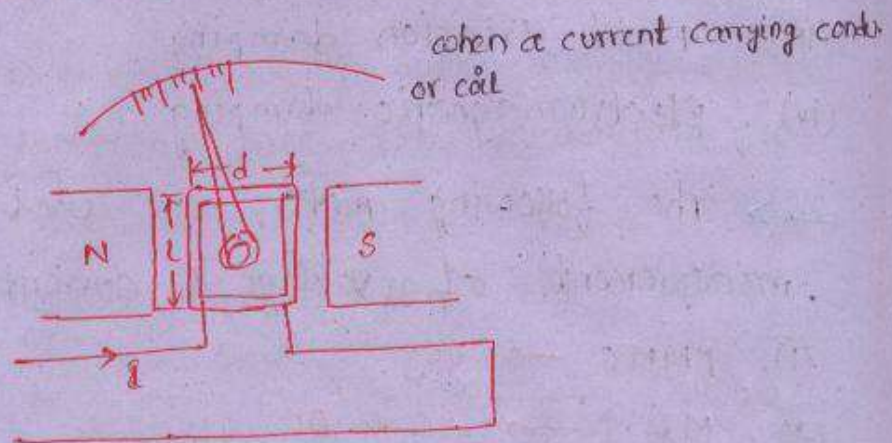 when a current carrying condu
or coil
d
N
l
S
I